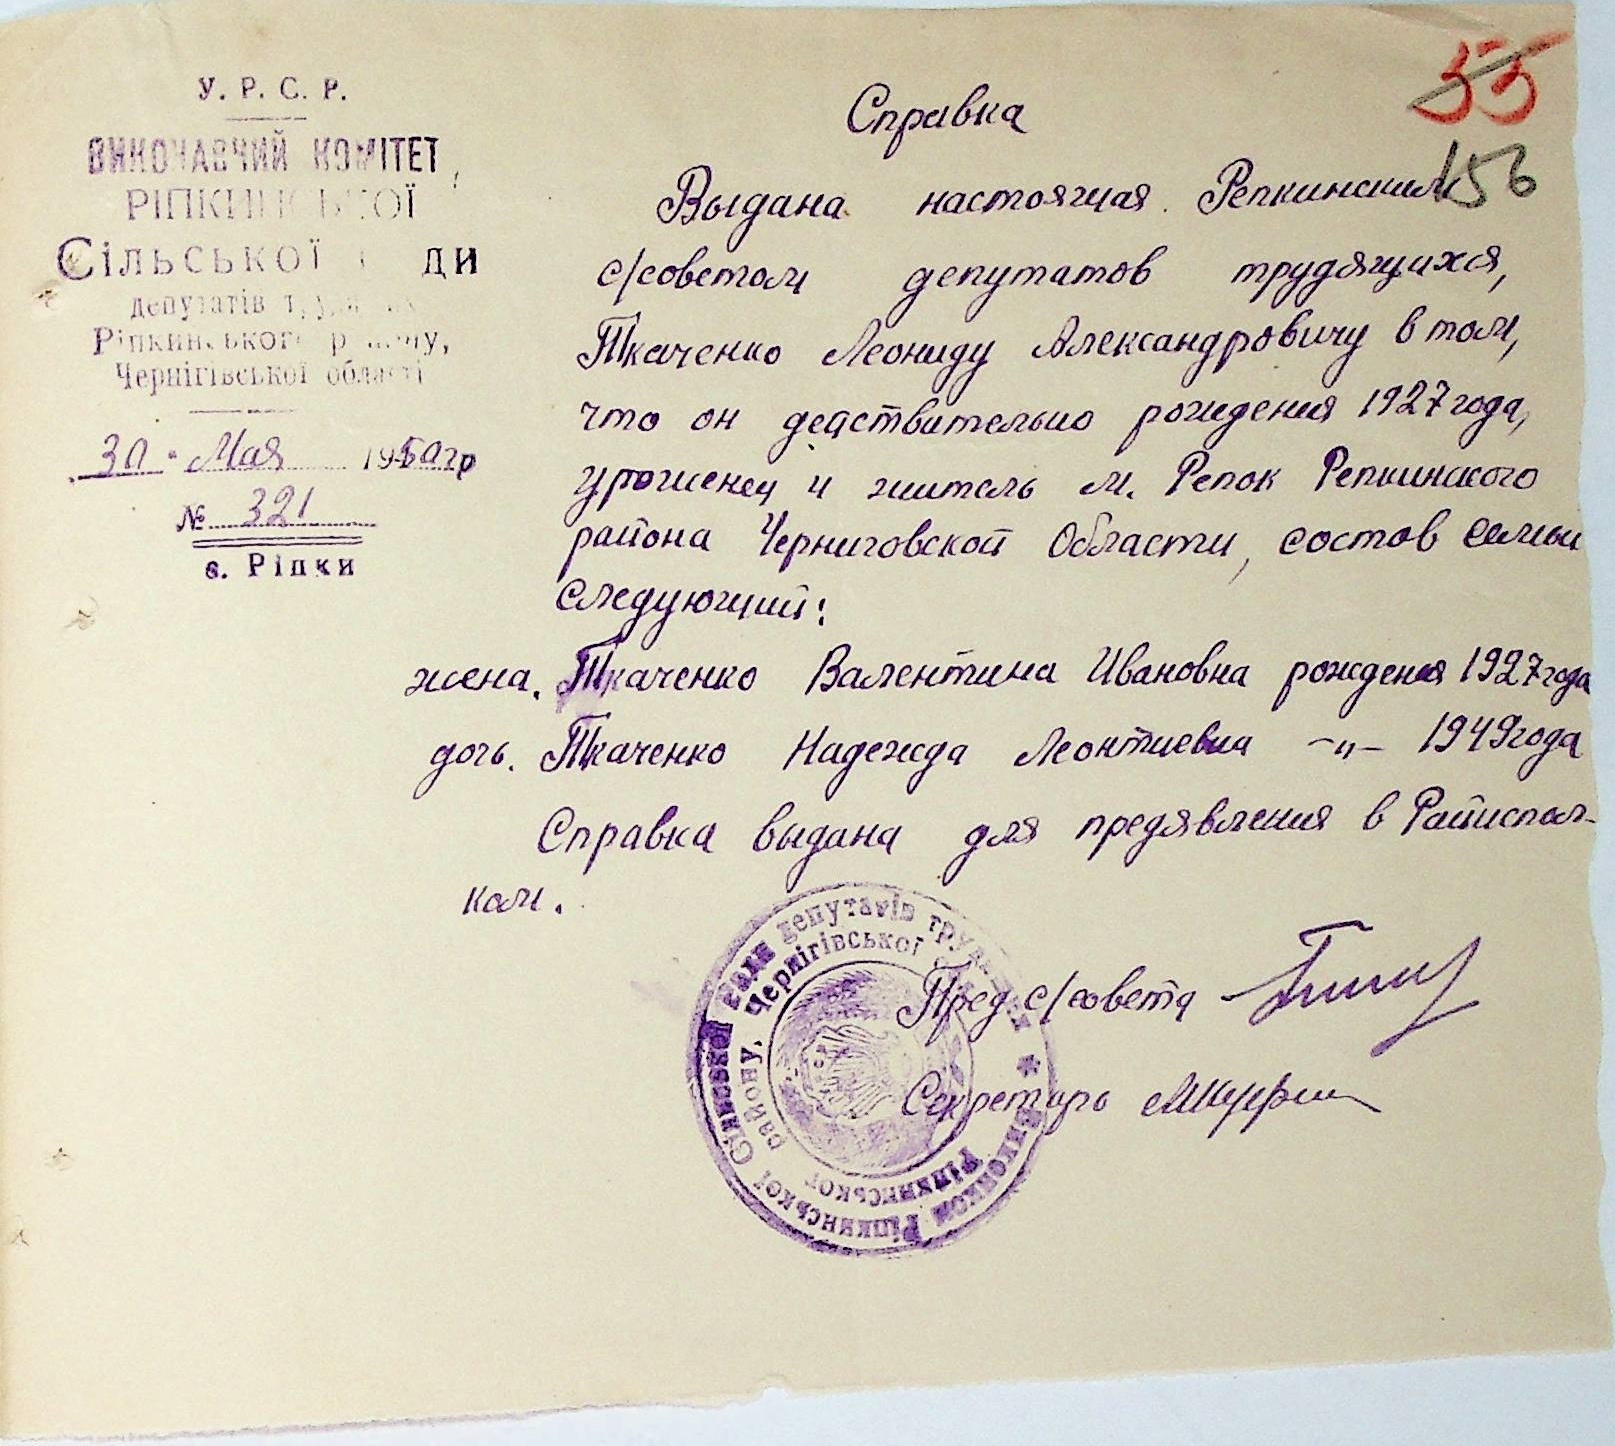 У. Р. С. Р.
ВИКОНАВЧИЙ КОМІТЕТ
РІПКИНСЬКОЇ
Сільської Ради
депутатів трудящих
Ріпкинського району,
Чернігівської області
30 Мая 1950 гр
№ 321
с. Ріпки
55
156
Справка
Выдана настоящая Репкинским
с/советом депутатов трудящихся,
Ткаченко Леониду Александровичу в том,
что он действительно рождения 1927 года,
уроженец и житель м. Репок Репкинского
района Черниговской Области, состов семьи
следующий:
жена. Ткаченко Валентина Ивановна рождения 1927 года
дочь. Ткаченко Надежда Леонтиевна –„– 1949 года
Справка выдана для предявления в Райиспол-
ком.
Пред с/совета
Секретарь
Виконком Ріпкинської Сільської Ради депутатів трудящих *
Ріпкинського району, Чернігівської